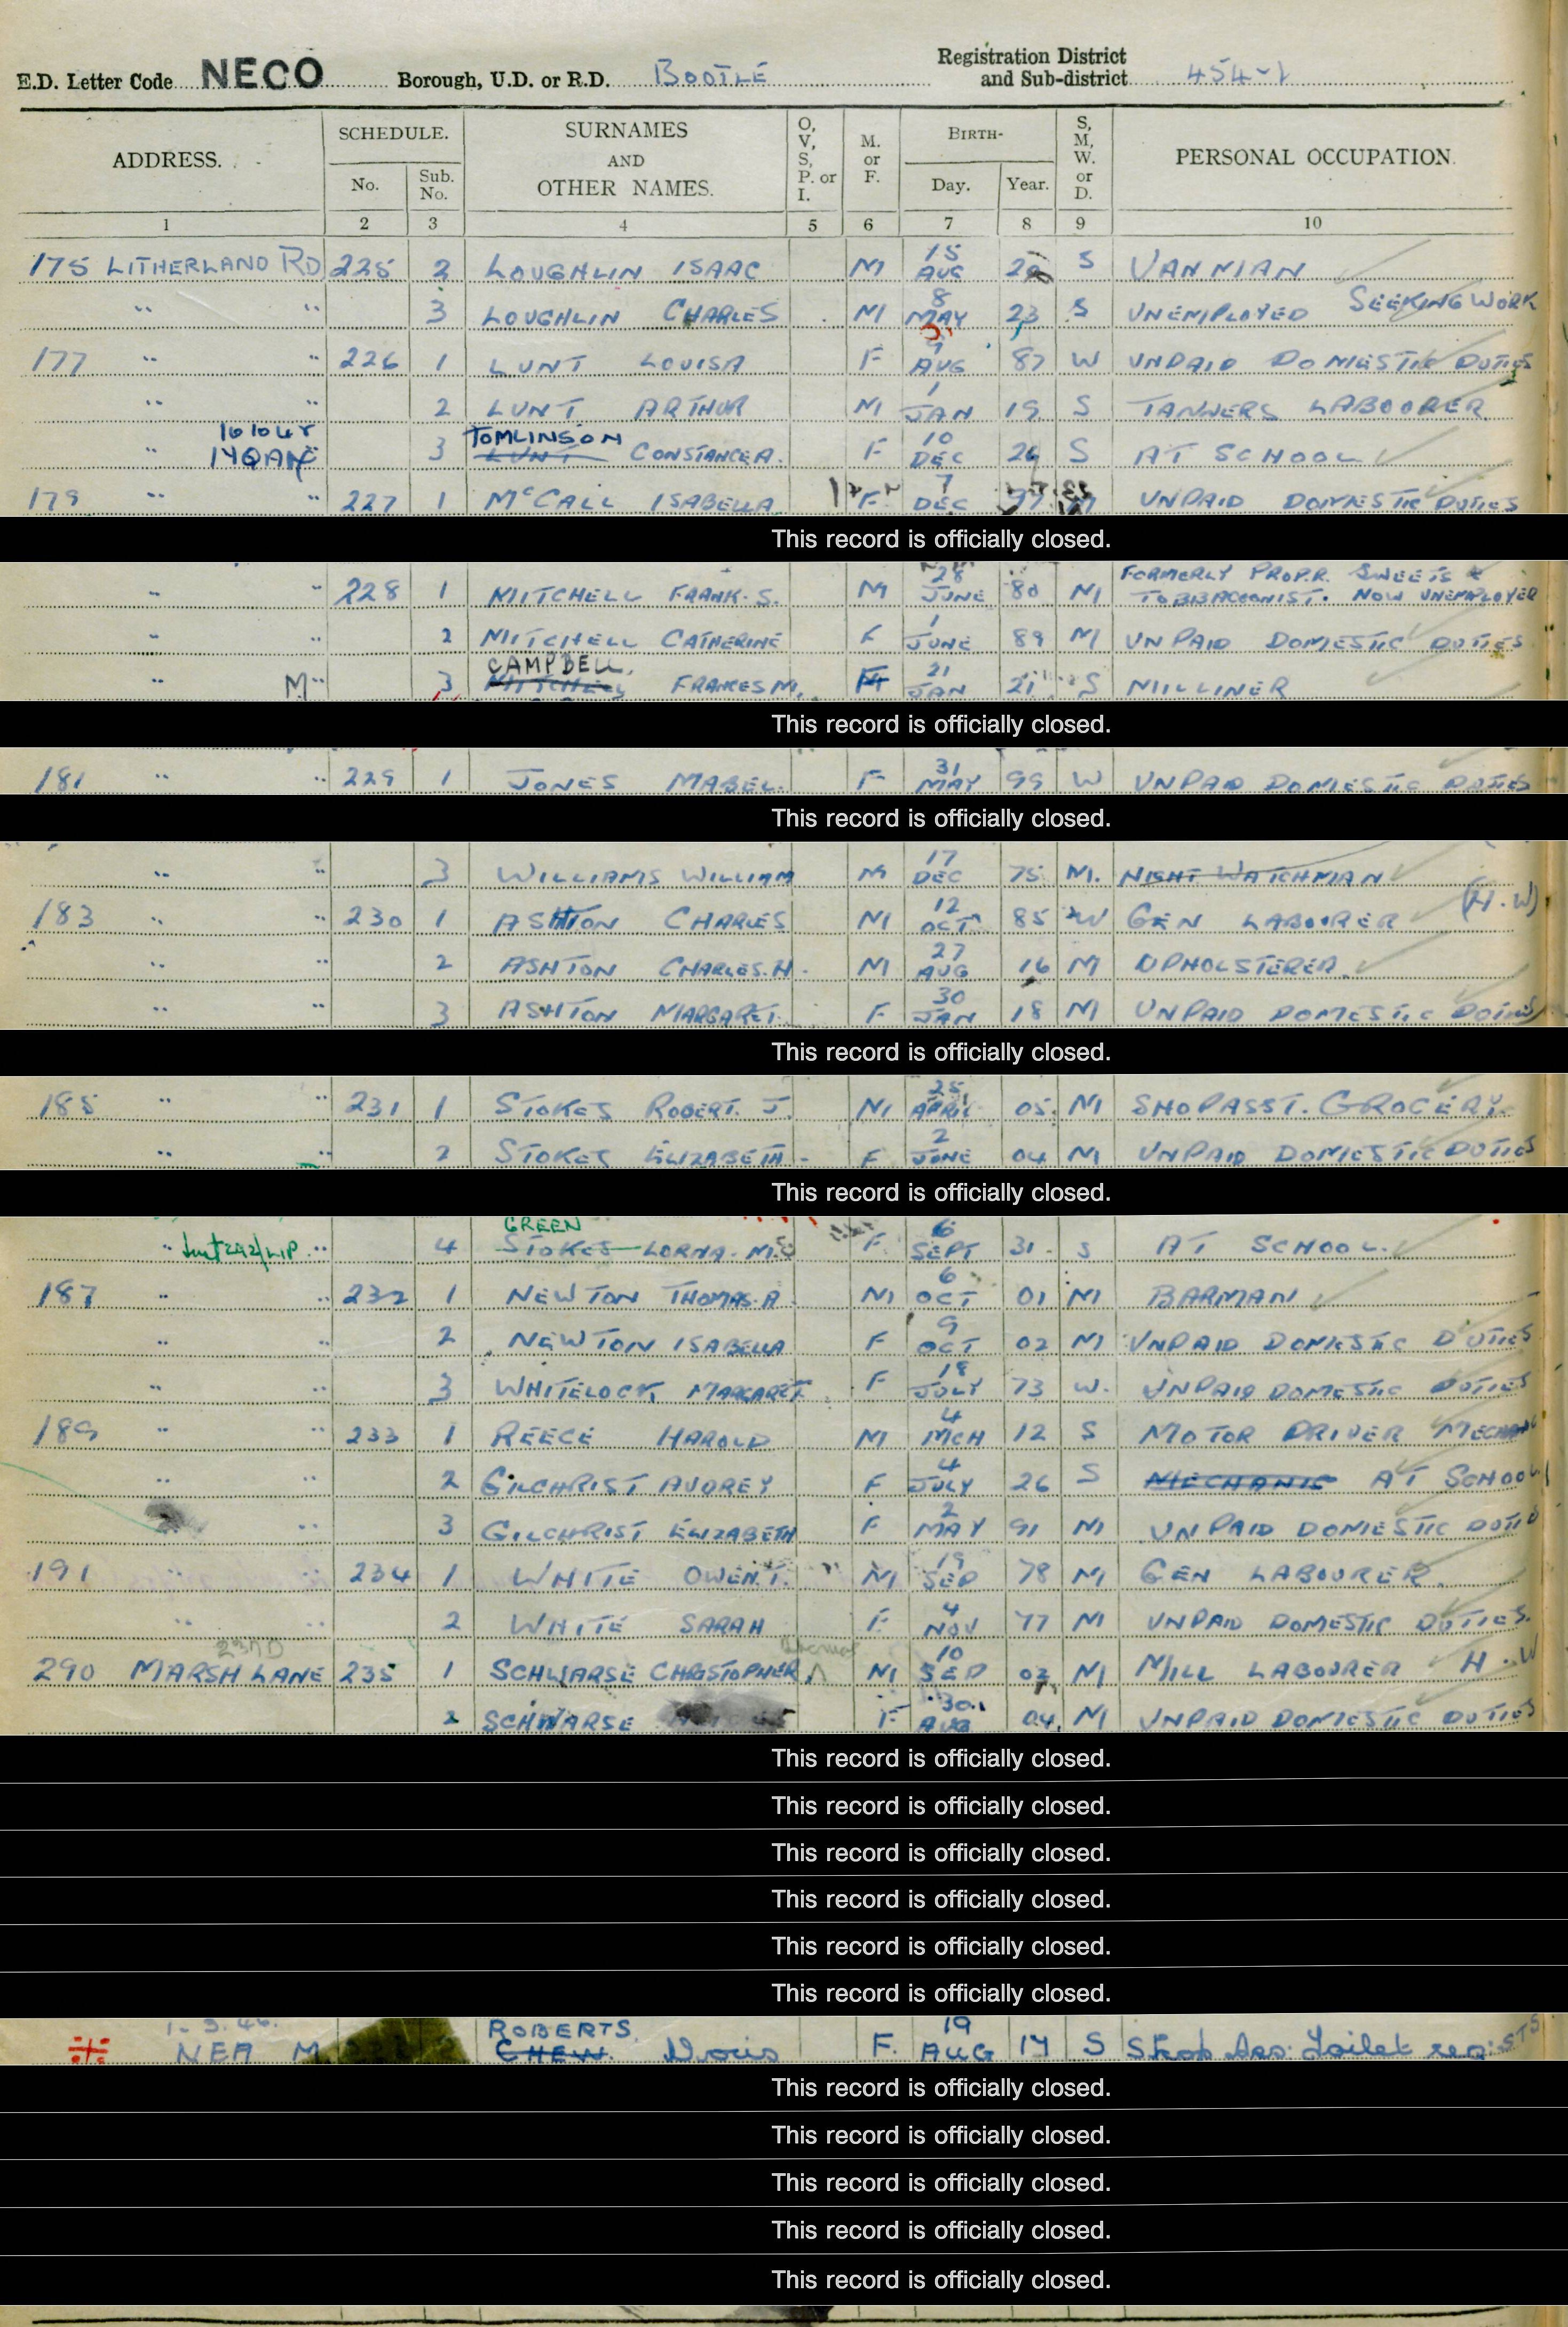 E.D. Letter Code NECO Borough, U.D. or R.D. BOOTLE Registration District and Sub-district 454-1
ADDRESS. SCHEDULE. No. Sub. No. SURNAMES AND OTHER NAMES. O, V, S, P. or I. M. or F. BIRTH- Day. Year. S, M, W. or D. PERSONAL OCCUPATION.
1 2 3 4 5 6 7 8 9 10
175 LITHERLAND RD 225 2 LOUGHLIN ISAAC M 15 AUG S VANMAN
" " 3 LOUGHLIN CHARLES M 8 MAY 23 S UNEMPLOYED SEEKING WORK
177 " " 226 1 LUNT LOUISA F 9 AUG 87 W UNPAID DOMESTIC DUTIES
" " 2 LUNT ARTHUR M 1 JAN 19 S TANNERS LABOURER
TOMLINSON
" 3 LUNT CONSTANCE A. F 10 DEC 26 S AT SCHOOL
179 " " 227 1 McCALL ISABELLA F 7 DEC 97 M UNPAID DOMESTIC DUTIES
This record is officially closed.
" " 228 1 MITCHELL FRANK. S. M 28 JUNE 80 M FORMERLY PROP.R. SWEETS & TOBBACCONIST. NOW UNEMPLOYED
" " 2 MITCHELL CATHERINE F 1 JUNE 89 M UNPAID DOMESTIC DUTIES
CAMPBELL.
" M " 3 MITCHELL FRANCES M. F 21 JAN 21 S MILLINER
This record is officially closed.
181 " " 229 1 JONES MABEL. F 31 MAY 99 W UNPAID DOMESTIC DUTIES
This record is officially closed.
" " 3 WILLIAMS WILLIAM M 17 DEC 75 M. NIGHT WATCHMAN
183 " " 230 1 ASHTON CHARLES M 12 OCT 85 W GEN LABOURER (H.W)
" " 2 ASHTON CHARLES. H. M 27 AUG 16 M UPHOLSTERER.
" " 3 ASHTON MARGARET. F 30 JAN 18 M UNPAID DOMESTIC DUTIES
This record is officially closed.
185 " " 231 1 STOKES ROBERT. J. M 25 APRIL 05. M SHOP ASST. GROCERY.
" " 2 STOKES ELIZABETH - F 2 JUNE 04 M UNPAID DOMESTIC DUTIES
This record is officially closed.
GREEN
" " 4 STOKES LORNA. M. F 6 SEPT 31. S AT SCHOOL.
187 " " 232 1 NEWTON THOMAS. A M 6 OCT 01 M BARMAN
" " 2 NEWTON ISABELLA F 9 OCT 02 M UNPAID DOMESTIC DUTIES
" " 3 WHITELOCK, MARGARET. F 18 JULY 73 W. UNPAID DOMESTIC DUTIES
189 " " 233 1 REECE HAROLD M 4 MCH 12 S MOTOR DRIVER MECHANIC
" " 2 GILCHRIST AUDREY F 4 JULY 26 S MECHANIC AT SCHOOL
" 3 GILCHRIST ELIZABETH F 2 MAY 91 M UNPAID DOMESTIC DUTIES
191 " " 234 1 WHITE OWEN. T. M 19 SEP 78 M GEN LABOURER
" " 2 WHITE SARAH F 4 NOV 77 M UNPAID DOMESTIC DUTIES.
290 MARSH LANE 235 1 SCHWARSE CHRISTOPHER M 10 SEP 02 M MILL LABOURER H.W
2 SCHWARSE F 30 AUG 04 M UNPAID DOMESTIC DUTIES
This record is officially closed.
This record is officially closed.
This record is officially closed.
This record is officially closed.
This record is officially closed.
This record is officially closed.
1.3.46. ROBERTS.
NEA M CHEW. Doris F. 19 AUG 17 S Shop Ass: Toilet req: STS
This record is officially closed.
This record is officially closed.
This record is officially closed.
This record is officially closed.
This record is officially closed.